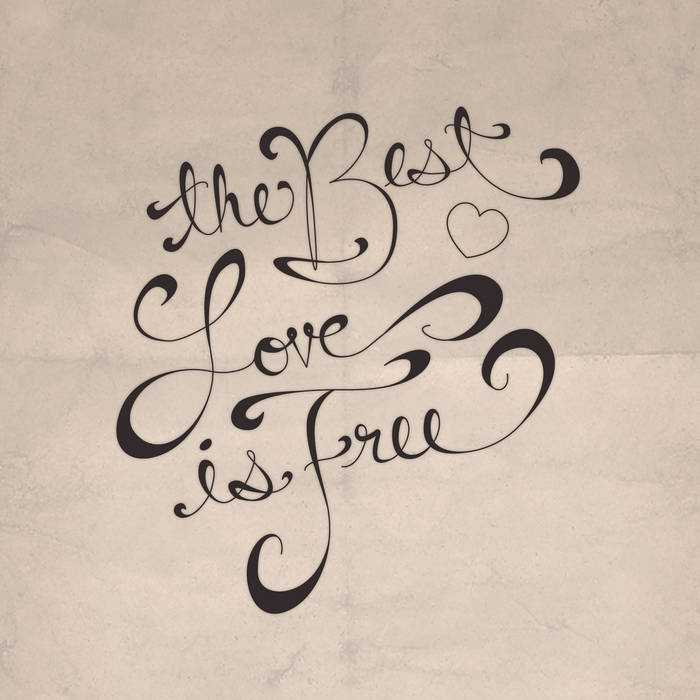 the Best
Love
is Free